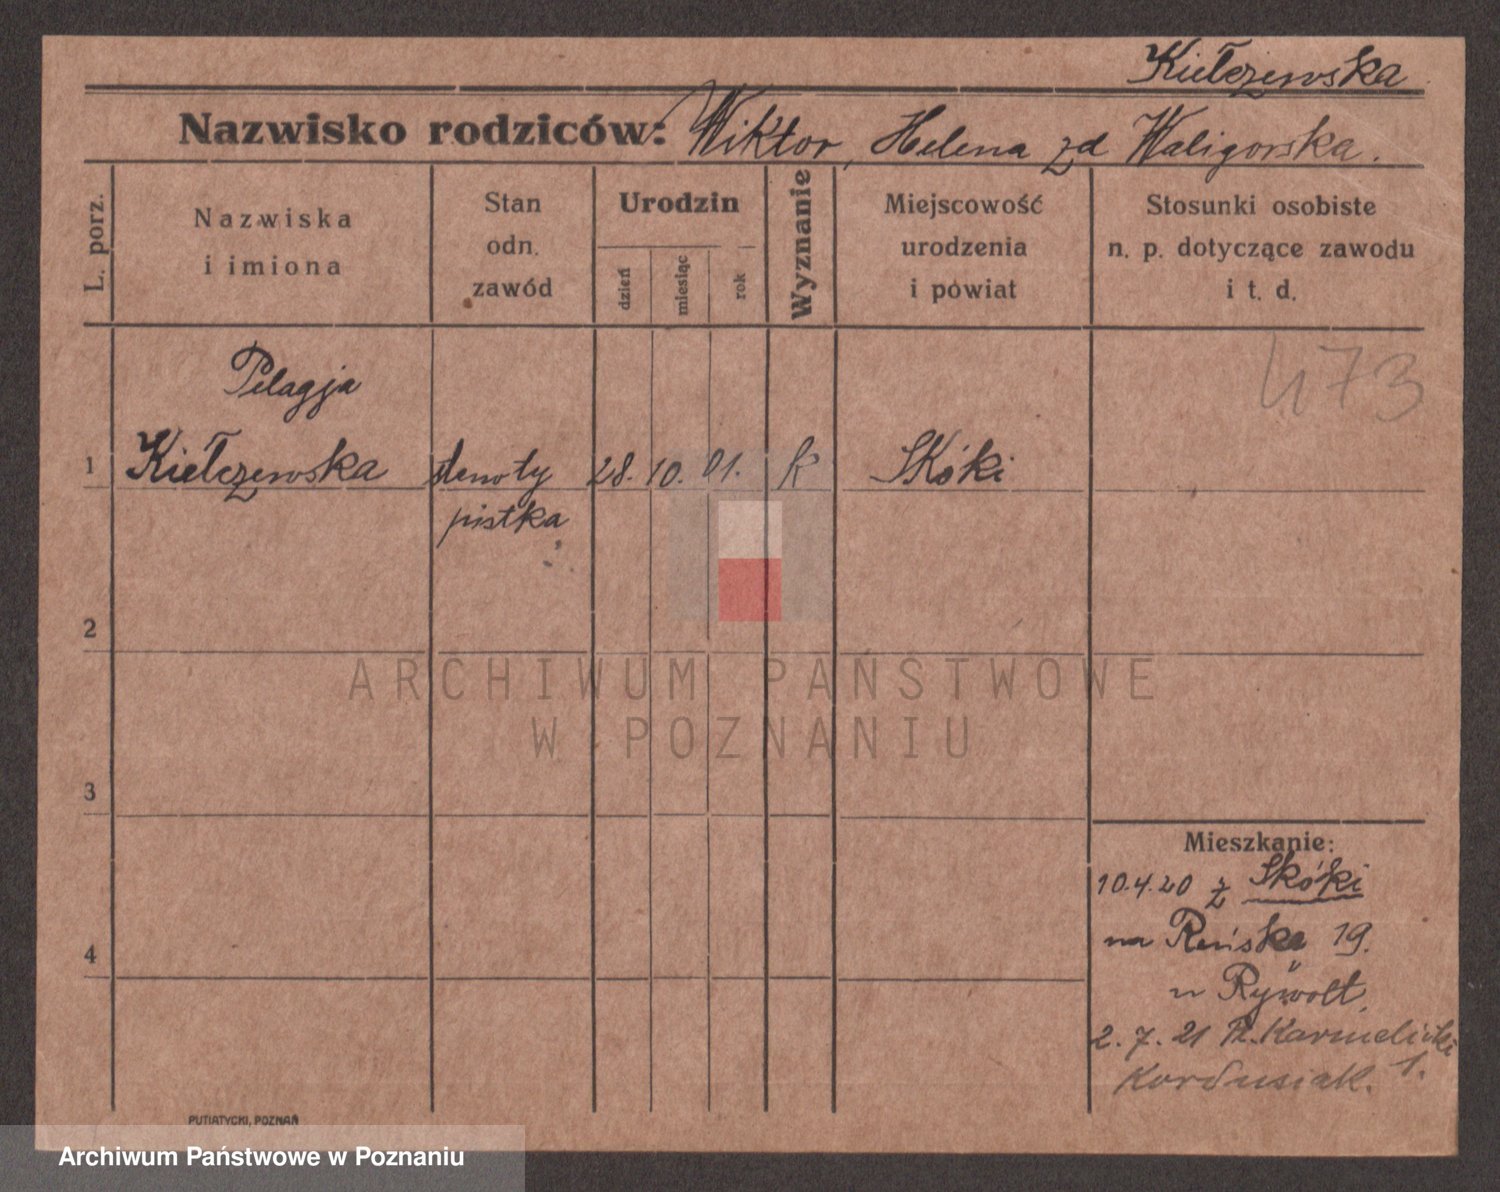 Kiełczewska
Nazwisko rodziców: Wiktor, Helena zd Waligorska.
L. porz.
Nazwiska
i imiona
Stan
odn.
zawód
Urodzin
dzień
miesiąc
rok
Wyznanie
Miejscowość
urodzenia
i powiat
Stosunki osobiste
n. p. dotyczące zawodu
i t. d.
473
Pelagja
1 Kiełczewska stenoty 28. 10. 01. k Skóki
pistka
2
ARCHIWUM PAŃSTWOWE
W POZNANIU
3
Mieszkanie:
10.4.20 z Skóki
na Reńska 19.
4
u Rywolt
2. 7. 21 Pl. Karmelicki
1.
Kordusiak.
PUTIATYCKI, POZNAŃ
Archiwum Państwowe w Poznaniu